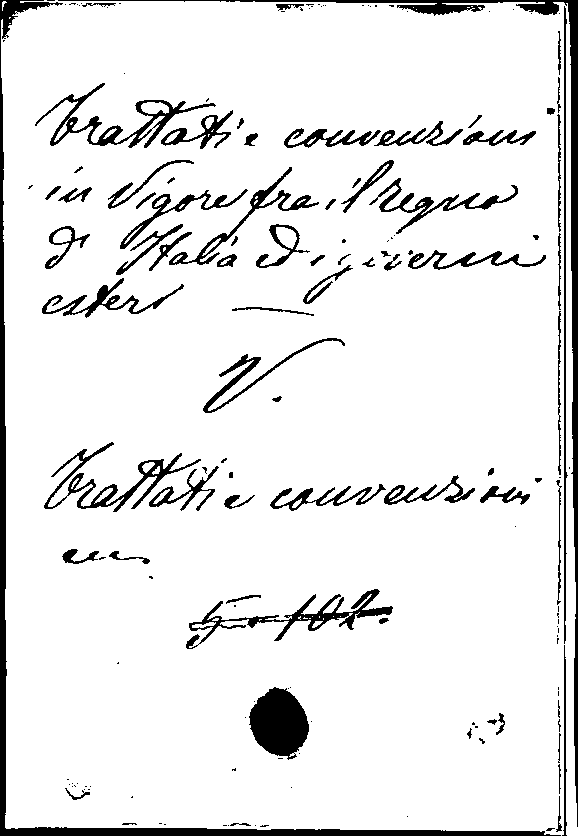 Trattati e convenzioni
in vigore fra il regno
d' Italia ed i governi
esteri —
V.
Trattati e convenzioni
5.102.